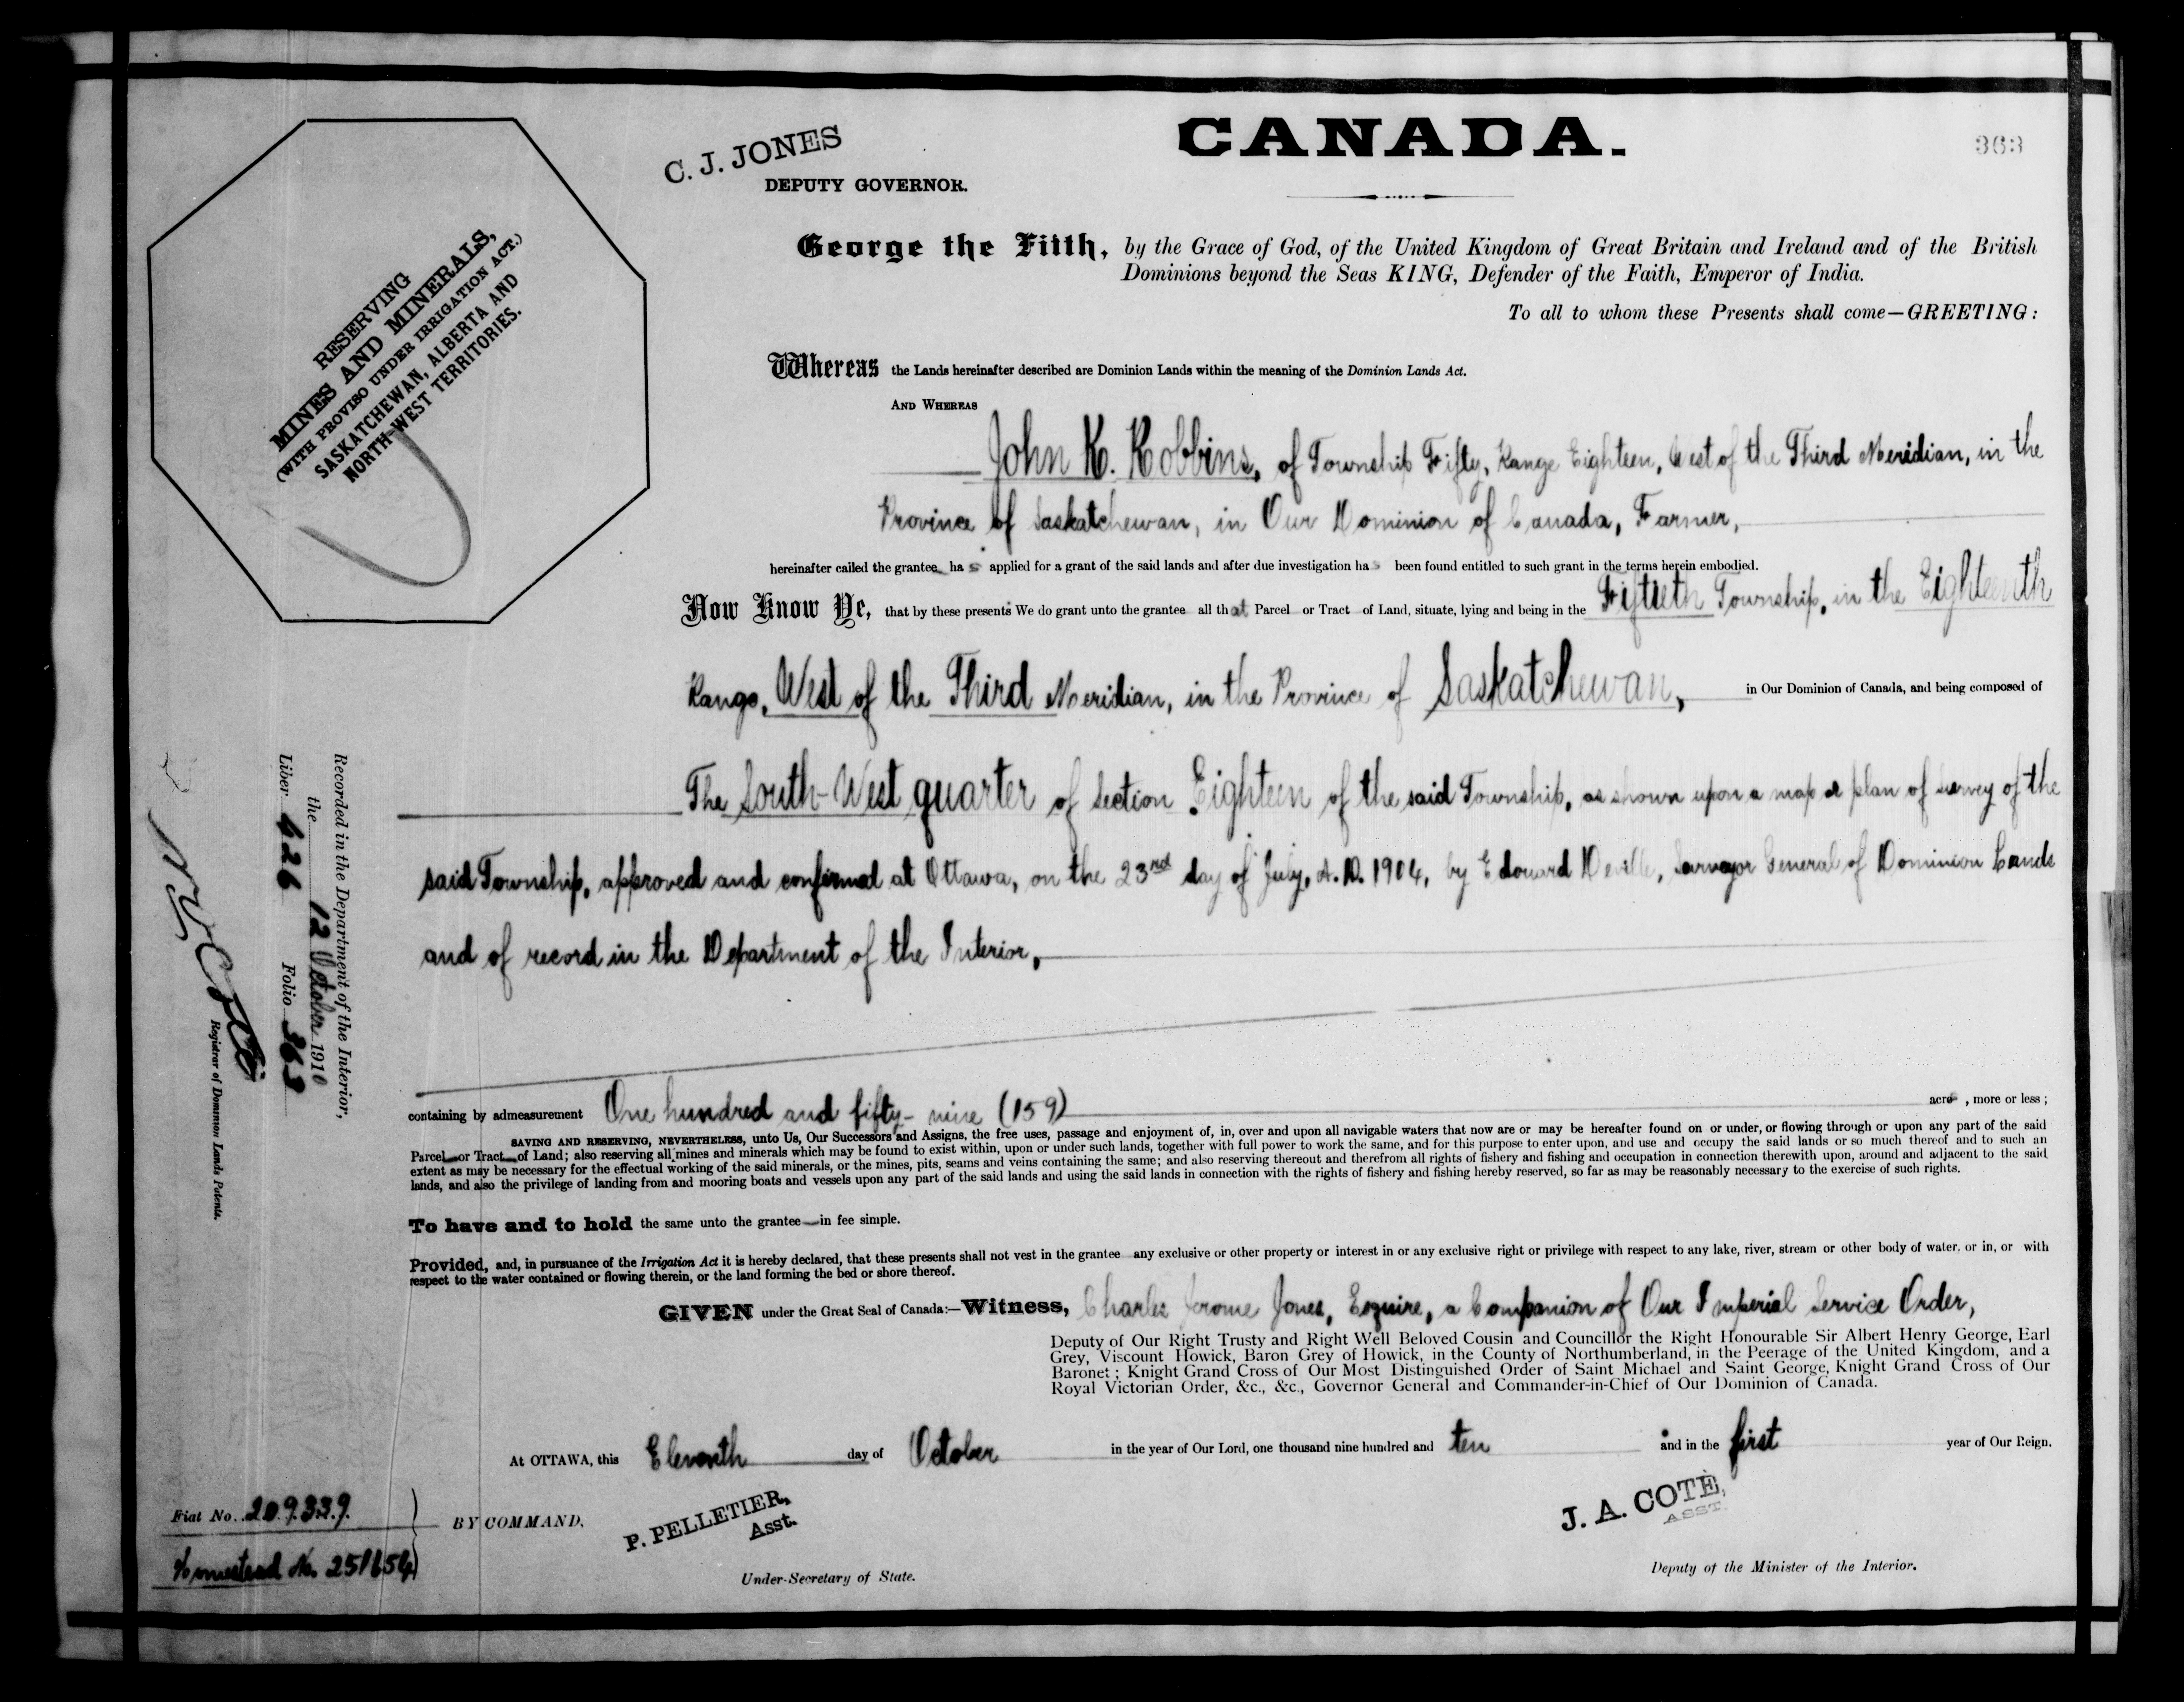 CANADA.
363
C. J. JONES
DEPUTY GOVERNOR.
RESERVING
MINES AND MINERALS,
(WITH PROVISO UNDER IRRIGATION ACT.)
SASKATCHEWAN, ALBERTA AND
NORTH-WEST TERRITORIES.
George the Fifth, by the Grace of God, of the United Kingdom of Great Britain and Ireland and of the British
Dominions beyond the Seas KING, Defender of the Faith, Emperor of India.
To all to whom these Presents shall come—GREETING:
Whereas the Lands hereinafter described are Dominion Lands within the meaning of the Dominion Lands Act.
AND WHEREAS
John K. Robbins, of Township Fifty, Range Eighteen, West of the Third Meridian, in the
Province of Saskatchewan, in Our Dominion of Canada, Farmer,
hereinafter called the grantee has applied for a grant of the said lands and after due investigation has been found entitled to such grant in the terms herein embodied.
Now Know Ye, that by these presents We do grant unto the grantee all that Parcel or Tract of Land, situate, lying and being in the Fiftieth Township, in the Eighteenth
Range, West of the Third Meridian, in the Province of Saskatchewan, in Our Dominion of Canada, and being composed of
The South-West quarter of Section Eighteen of the said Township, as shown upon a map or plan of survey of the
said Township, approved and confirmed at Ottawa, on the 23rd day of July, A.D. 1904, by Edouard Deville, Surveyor General of Dominion Lands
and of record in the Department of the Interior,
containing by admeasurement One hundred and fifty-nine (159) acres, more or less;
SAVING AND RESERVING, NEVERTHELESS, unto Us, Our Successors and Assigns, the free uses, passage and enjoyment of, in, over and upon all navigable waters that now are or may be hereafter found on or under, or flowing through or upon any part of the said
Parcel or Tract of Land; also reserving all mines and minerals which may be found to exist within, upon or under such lands, together with full power to work the same, and for this purpose to enter upon, and use and occupy the said lands or so much thereof and to such an
extent as may be necessary for the effectual working of the said minerals, or the mines, pits, seams and veins containing the same; and also reserving thereout and therefrom all rights of fishery and fishing and occupation in connection therewith upon, around and adjacent to the said
lands, and also the privilege of landing from and mooring boats and vessels upon any part of the said lands and using the said lands in connection with the rights of fishery and fishing hereby reserved, so far as may be reasonably necessary to the exercise of such rights.
To have and to hold the same unto the grantee in fee simple.
Provided, and, in pursuance of the Irrigation Act it is hereby declared, that these presents shall not vest in the grantee any exclusive or other property or interest in or any exclusive right or privilege with respect to any lake, river, stream or other body of water, or in, or with
respect to the water contained or flowing therein, or the land forming the bed or shore thereof.
GIVEN under the Great Seal of Canada:—Witness, Charles Jerome Jones, Esquire, a Companion of Our Imperial Service Order,
Deputy of Our Right Trusty and Right Well Beloved Cousin and Councillor the Right Honourable Sir Albert Henry George, Earl
Grey, Viscount Howick, Baron Grey of Howick, in the County of Northumberland, in the Peerage of the United Kingdom, and a
Baronet; Knight Grand Cross of Our Most Distinguished Order of Saint Michael and Saint George, Knight Grand Cross of Our
Royal Victorian Order, &c., &c., Governor General and Commander-in-Chief of Our Dominion of Canada.
At OTTAWA, this Eleventh day of October in the year of Our Lord, one thousand nine hundred and ten and in the first year of Our Reign.
BY COMMAND,
P. PELLETIER,
Asst.
Under-Secretary of State.
J. A. COTÉ,
ASST.
Deputy of the Minister of the Interior.
Fiat No. 209339.
Homestead No. 251654
Recorded in the Department of the Interior,
the 12 October 1910
Liber 426 Folio 363
Registrar of Dominion Lands Patents.